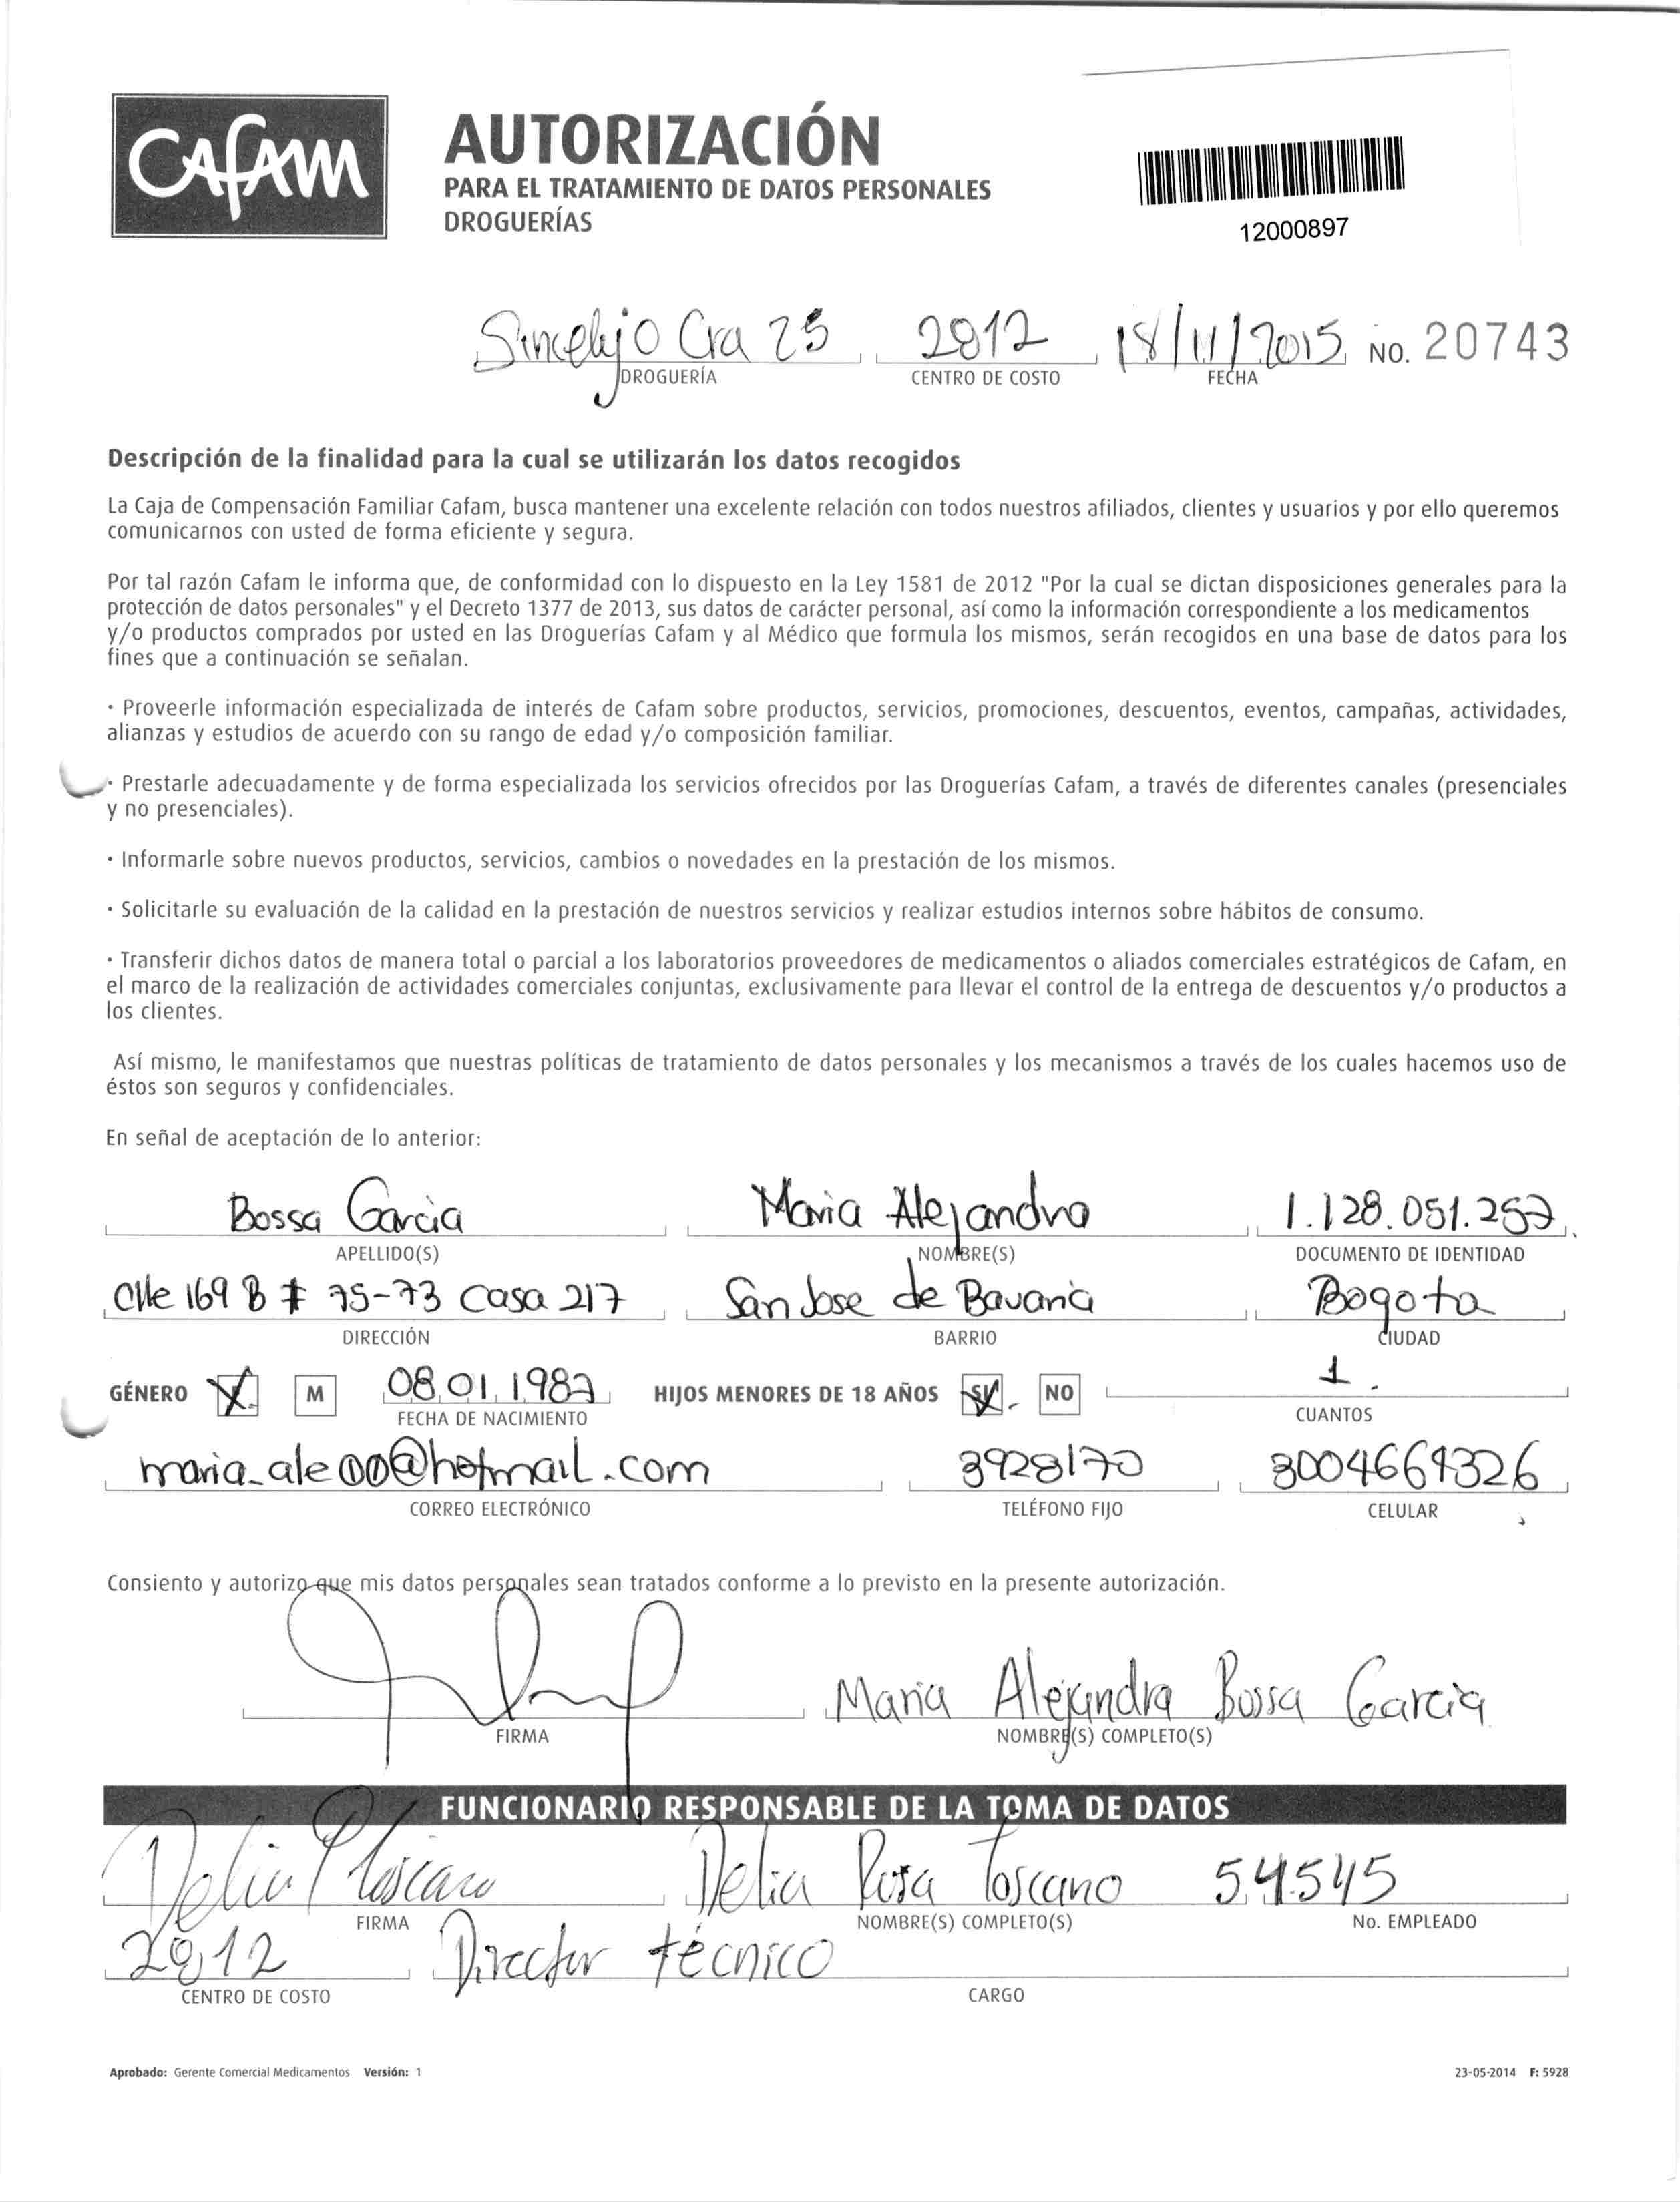 CAfAM
AUTORIZACIÓN
PARA EL TRATAMIENTO DE DATOS PERSONALES
DROGUERÍAS
12000897
Sincelejo Cra 25 2812 18/11/2015 NO. 20743
DROGUERÍA CENTRO DE COSTO FECHA
Descripción de la finalidad para la cual se utilizarán los datos recogidos
La Caja de Compensación Familiar Cafam, busca mantener una excelente relación con todos nuestros afiliados, clientes y usuarios y por ello queremos
comunicarnos con usted de forma eficiente y segura.
Por tal razón Cafam le informa que, de conformidad con lo dispuesto en la Ley 1581 de 2012 "Por la cual se dictan disposiciones generales para la
protección de datos personales" y el Decreto 1377 de 2013, sus datos de carácter personal, así como la información correspondiente a los medicamentos
y/o productos comprados por usted en las Droguerías Cafam y al Médico que formula los mismos, serán recogidos en una base de datos para los
fines que a continuación se señalan.
· Proveerle información especializada de interés de Cafam sobre productos, servicios, promociones, descuentos, eventos, campañas, actividades,
alianzas y estudios de acuerdo con su rango de edad y/o composición familiar.
· Prestarle adecuadamente y de forma especializada los servicios ofrecidos por las Droguerías Cafam, a través de diferentes canales (presenciales
y no presenciales).
· Informarle sobre nuevos productos, servicios, cambios o novedades en la prestación de los mismos.
· Solicitarle su evaluación de la calidad en la prestación de nuestros servicios y realizar estudios internos sobre hábitos de consumo.
· Transferir dichos datos de manera total o parcial a los laboratorios proveedores de medicamentos o aliados comerciales estratégicos de Cafam, en
el marco de la realización de actividades comerciales conjuntas, exclusivamente para llevar el control de la entrega de descuentos y/o productos a
los clientes.
Así mismo, le manifestamos que nuestras políticas de tratamiento de datos personales y los mecanismos a través de los cuales hacemos uso de
éstos son seguros y confidenciales.
En señal de aceptación de lo anterior:
Bossa Garcia Maria Alejandra 1.128.051.257
APELLIDO(S) NOMBRE(S) DOCUMENTO DE IDENTIDAD
Clle 169 B # 75-73 Casa 217 San Jose de Bavaria Bogota
DIRECCIÓN BARRIO CIUDAD
GÉNERO X M 08 01 1987 HIJOS MENORES DE 18 AÑOS SI NO 1
FECHA DE NACIMIENTO CUANTOS
maria_ale00@hotmail.com 3928170 3004664326
CORREO ELECTRÓNICO TELÉFONO FIJO CELULAR
Consiento y autorizo que mis datos personales sean tratados conforme a lo previsto en la presente autorización.
Maria Alejandra Bossa Garcia
FIRMA NOMBRE(S) COMPLETO(S)
FUNCIONARIO RESPONSABLE DE LA TOMA DE DATOS
Delia Toscano Delia Rosa Toscano 54545
FIRMA NOMBRE(S) COMPLETO(S) No. EMPLEADO
2812 Director técnico
CENTRO DE COSTO CARGO
Aprobado: Gerente Comercial Medicamentos Versión: 1 23-05-2014 F: 5928